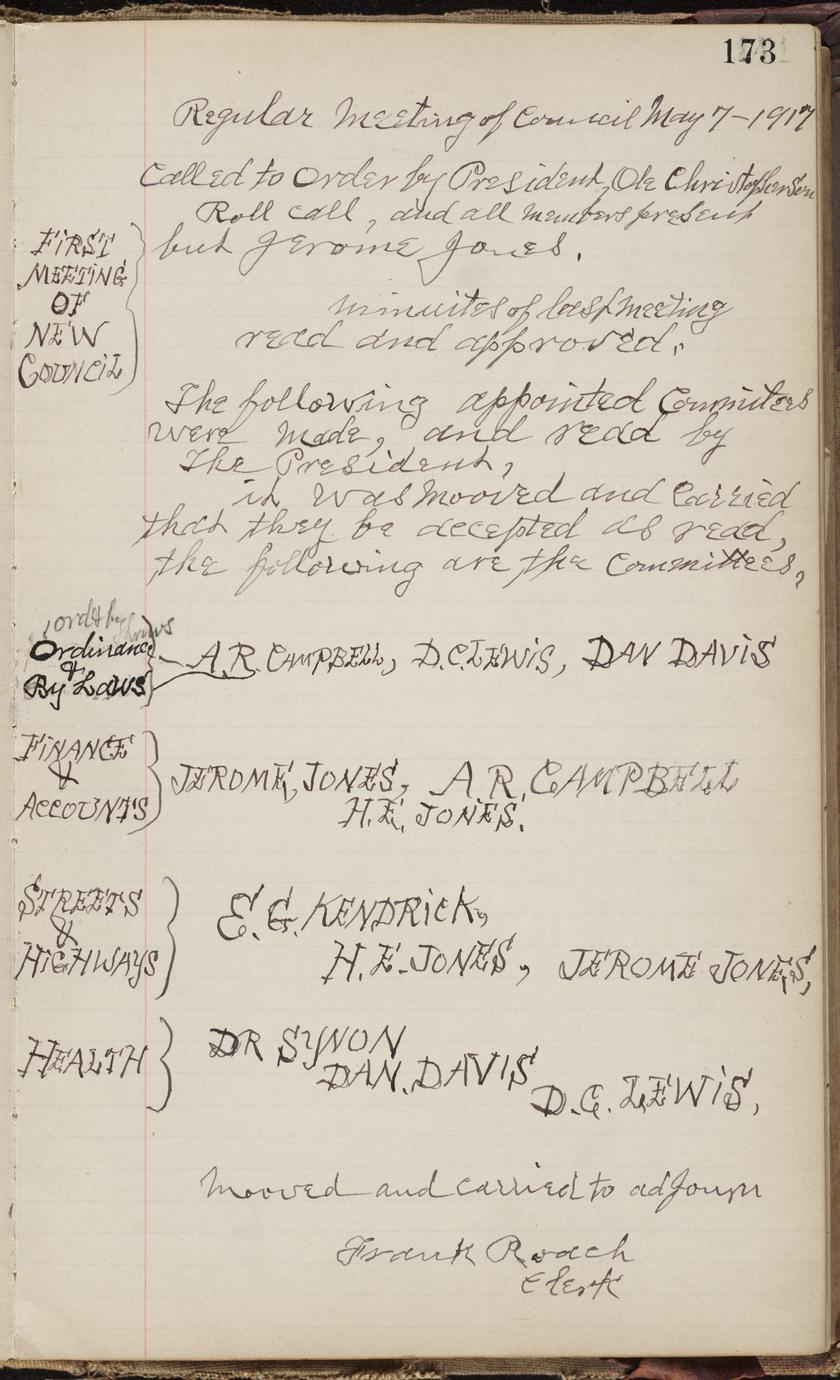 173
Regular Meeting of Council May 7-1917
Called to order by President, Ole Christopherson
Roll call, and all members present
but Jerome Jones.
FIRST
MEETING
OF
NEW
COUNCIL
minuites of last meeting
read and approved.
The following appointed Commitees
were made, and read by
The President,
it was mooved and carried
that they be accepted as read,
the following are the Committees,
Ordinance
&
By Laws
A.R. CAMPBELL, D.C. LEWIS, DAN DAVIS
FINANCE
&
ACCOUNTS
JEROME, JONES, A.R. CAMPBELL
H.E. JONES.
STREETS
&
HIGHWAYS
E.G. KENDRICK,
H.E. JONES, JEROME JONES,
HEALTH
DR SYNON
DAN. DAVIS
D.C. LEWIS,
Mooved and carried to adjourn
Frank Roach
Clerk